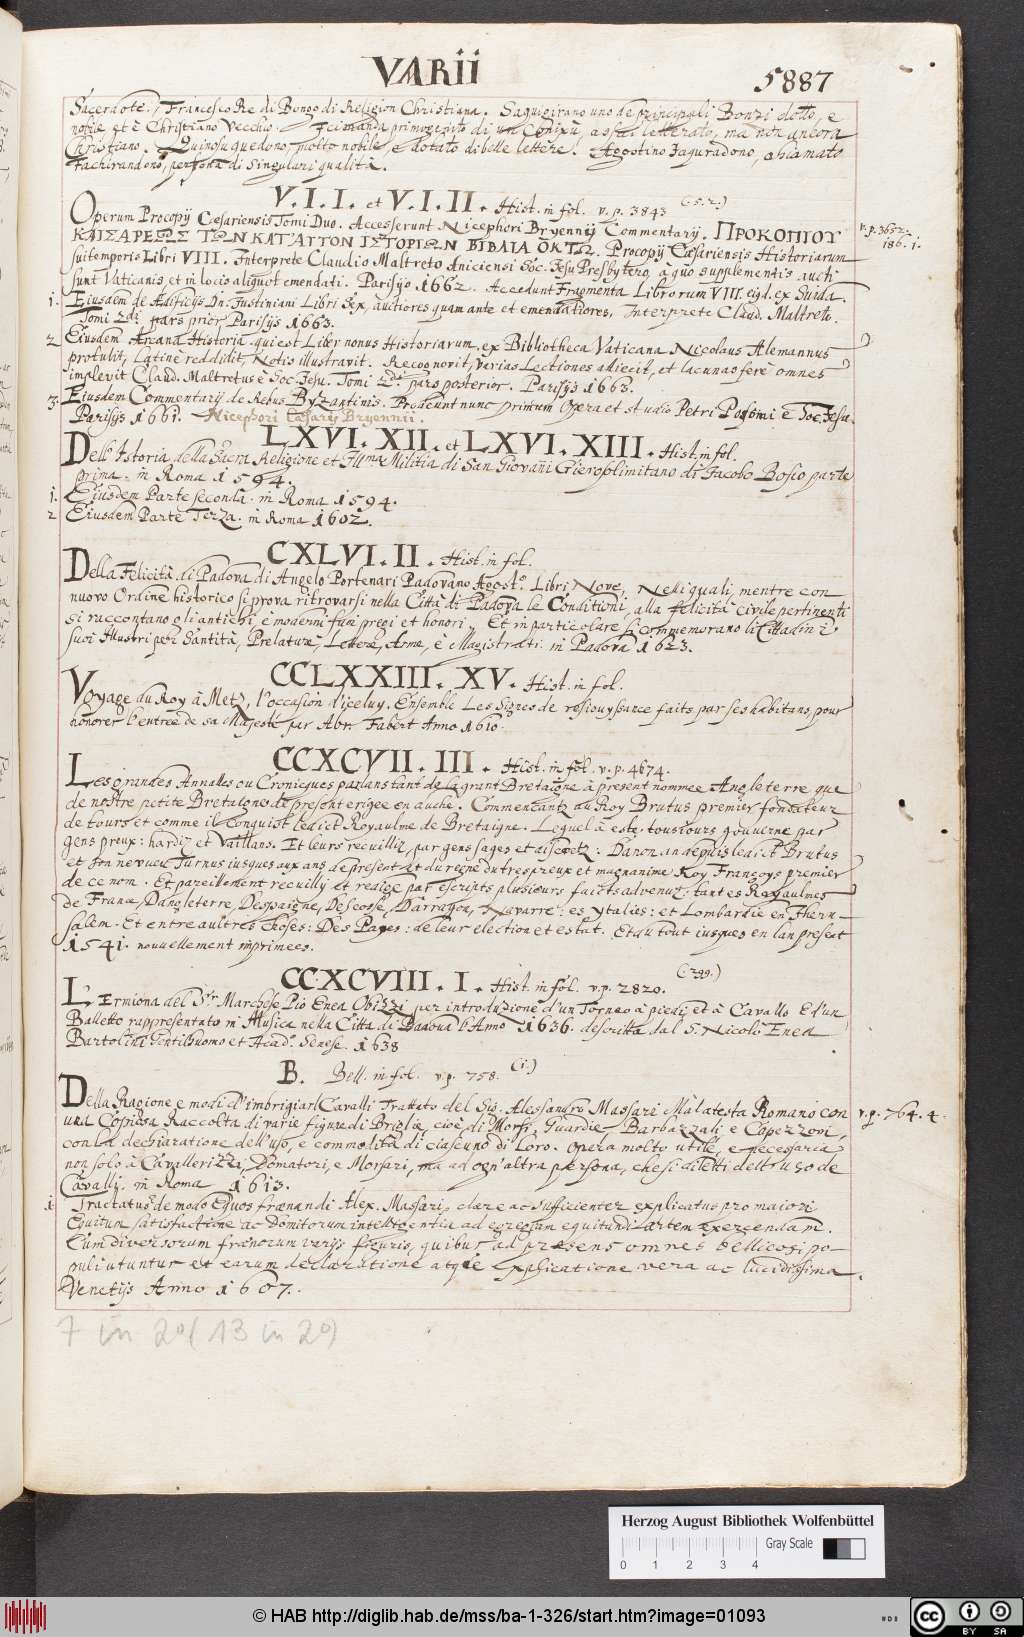 VARii
5887
Sacerdote. Francesco Re di Bongo di Religion Christiana. Saquigirano uno de principali Bonzi dotto, e
nobile et è Christiano Vecchio. primogenito di un assai letterato, ma non ancora
Christiano. Quinosuquedono, molto nobile, e dotato di belle lettere. Agostino Jaguradono, chiamato
Fachirandono, persona di singulari qualità.
V.I.I. et V.I.II. Hist. in fol. v.p. 3843 (.52.)
Operum Procopij Cæsariensis Tomi Duo. Accesserunt Nicephori Bryennij Commentarij. ΠΡΟΚΟΠΙΟΥ
v.p. 3652.
186. 1.
ΚΑΙΣΑΡΕΩΣ ΤΩΝ ΚΑΤ'ΑΥΤΟΝ ΙΣΤΟΡΙΩΝ ΒΙΒΛΙΑ ΟΚΤΩ. Procopij Cæsariensis Historiarum
sui temporis Libri VIII. Interprete Claudio Maltreto Aniciensi Soc. Jesu Presbytero, à quo supplementis aucti
sunt Vaticanis, et in locis aliquot emendati. Parisijs 1662. Accedunt Fragmenta Librorum VIII. eiqd. ex Suida.
1. Eiusdem de Ædificijs Dn. Justiniani Libri Sex, auctiores quam ante et emendatiores, Interprete Claud. Maltreto.
Tomi 2di pars prior Parisijs 1663.
2 Eiusdem Arcana Historia. qui est Liber nonus Historiarum. ex Bibliotheca Vaticana Nicolaus Alemannus
protulit, Latinè reddidit, Notis illustravit. Recognovit, varias Lectiones adiecit, et lacunas ferè omnes
implevit Claud. Maltretus è Soc. Jesu. Tomi 2di pars posterior. Parisijs 1663.
3. Eiusdem Commentarij de Rebus Byzantinis. Prodeunt nunc primum Opera et studio Petri Possini è Soc. Jesu.
Parisijs 1661. Nicephori Cæsarij Bryennii.
LXVI. XII. et LXVI. XIII. Hist. in fol.
Dell' Istoria della Sacra Religione et Illma Militia di San Giovanni Gierosolimitano di Jacobo Bosio parte
prima. in Roma 1594.
1. Eiusdem Parte seconda. in Roma 1594.
2 Eiusdem Parte Terza. in Roma 1602.
CXLVI. II. Hist. in fol.
Della Felicità di Padova di Angelo Portenari Padovano Agosto. Libri Nove, Nelli quali, mentre con
nuovo Ordine historico si prova ritrovarsi nella Città di Padova le Conditioni, alla felicità civile pertinenti
si raccontano gli antichi, e moderni suoi pregi et honori, Et in particolare si commemorano li Cittadini
suoi Illustri per Santità, Prelature, Lettere, Arme, è Magistrati. in Padova 1623.
CCLXXIII. XV. Hist. in fol.
Voyage du Roy à Metz, l'occasion d'iceluy. Ensemble Les Signes de resiouyssance faits par ses habitans, pour
honorer l'entrée de sa Majesté par Abr. Fabert Anno 1610.
CCXCVII. III. Hist. in fol. v.p. 4674.
Les grandes Annalles ou Cronicques parlans tant de la grant Bretaigne à present nommee Angleterre que
de nostre petite Bretaigne de present erigee en duche. Commencantz au Roy Brutus premier fondateur
de tours et comme il conquist ledict Royaulme de Bretaigne. Lequel à este tousiours gouverne par
gens preux: hardiz et Vaillans. Et leurs recuilliz, par gens sages et discretz: D'an en an depuis ledict Brutus
et son nevueu Turnus iusques aux ans de present et du regne du trespreux et magnanime Roy Françoys premier
de ce nom. Et pareillement recuilly et redige par escripts plusieurs faicts advenuz: tant es Royaulmes
de France, Dangleterre, Despaigne, Descosse, Darragon, Navarre: es Ytalies: et Lombardie en Jheru-
salem. Et entre aultres choses: Des Papes: de leur election et estat. Et du tout iusques en lan present
1541. nouvellement imprimees.
CCXCVIII. I. Hist. in fol. v.p. 2820. (.299.)
L'Ermiona del Sr. Marchese Pio Enea Obizzi per introduzione d'un Torneo à piedi, et à Cavallo E d'un
Balletto rappresentato in Musica nella Città di Padoua l'Anno 1636. descritta dal S. Nicolò Enea
Bartolini Gentilhuomo et Acad. Senese. 1638
B. Bell. in fol. v.p. 758. (1.)
Della Ragione e modi d'imbrigiar Cavalli Trattato del Sig. Alessandro Massari Malatesta Romano con v.p. 764. 4.
una Copiosa Raccolta di varie figure di Briglie, cioè di Morsi, Guardie, Barbazzali, e Capezzoni,
con la dechiaratione dell'uso, e commodità di ciascuno di Loro. Opera molto utile, e necessaria
non solo à Cavallerizzi, Domatori, e Morsari, ma ad ogn'altra persona, che si diletti dell'uso de
Cavalli. in Roma 1613.
1. Tractatus de modo Equos frænandi Alex. Massari, clare ac sufficienter explicatus pro maiori
Equitum satisfactione ac Domitorum intelligentia ad egregiam equitandi artem exercendam.
Cum diversorum frænorum varijs figuris, quibus ad præsens omnes bellicosi po-
puli utuntur et earum declaratione atque explicatione vera ac lucidissima.
Venetijs Anno 1607.
7 in 2° (13 in 2°)
Herzog August Bibliothek Wolfenbüttel
Gray Scale
0 1 2 3 4
© HAB http://diglib.hab.de/mss/ba-1-326/start.htm?image=01093
cc BY SA